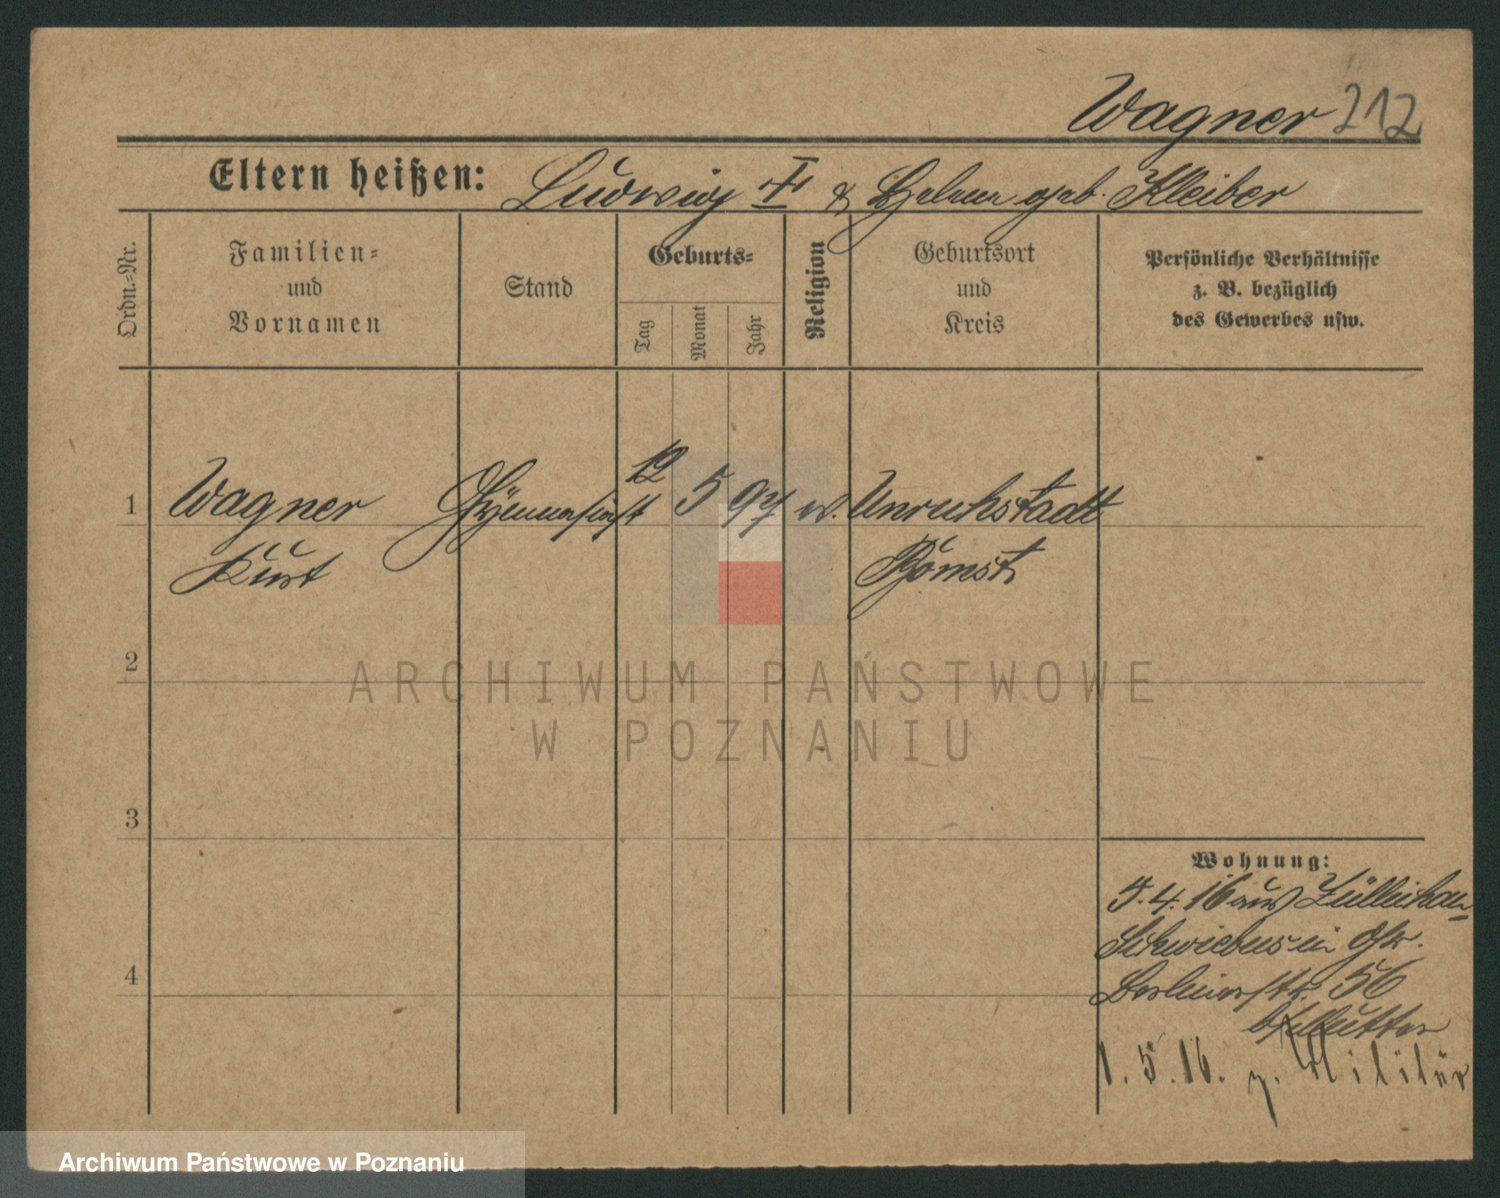 Wagner 212
Eltern heißen: Ludwig † & Helene geb. Kleiber
Ordn.-Nr.
Familien-
und
Vornamen
Stand
Geburts-
Tag
Monat
Jahr
Religion
Geburtsort
und
Kreis
Persönliche Verhältnisse
z. B. bezüglich
des Gewerbes usw.
1
Wagner Gymnasiast 12 5 97 ev. Unruhstadt
Kurt Bomst
2
3
4
Wohnung:
5.4.16 aus Züllichau-
Schwiebus in
Berlinerstr. 56
b/Mutter
1.5.16. z. Militär
ARCHIWUM PAŃSTWOWE
W POZNANIU
Archiwum Państwowe w Poznaniu